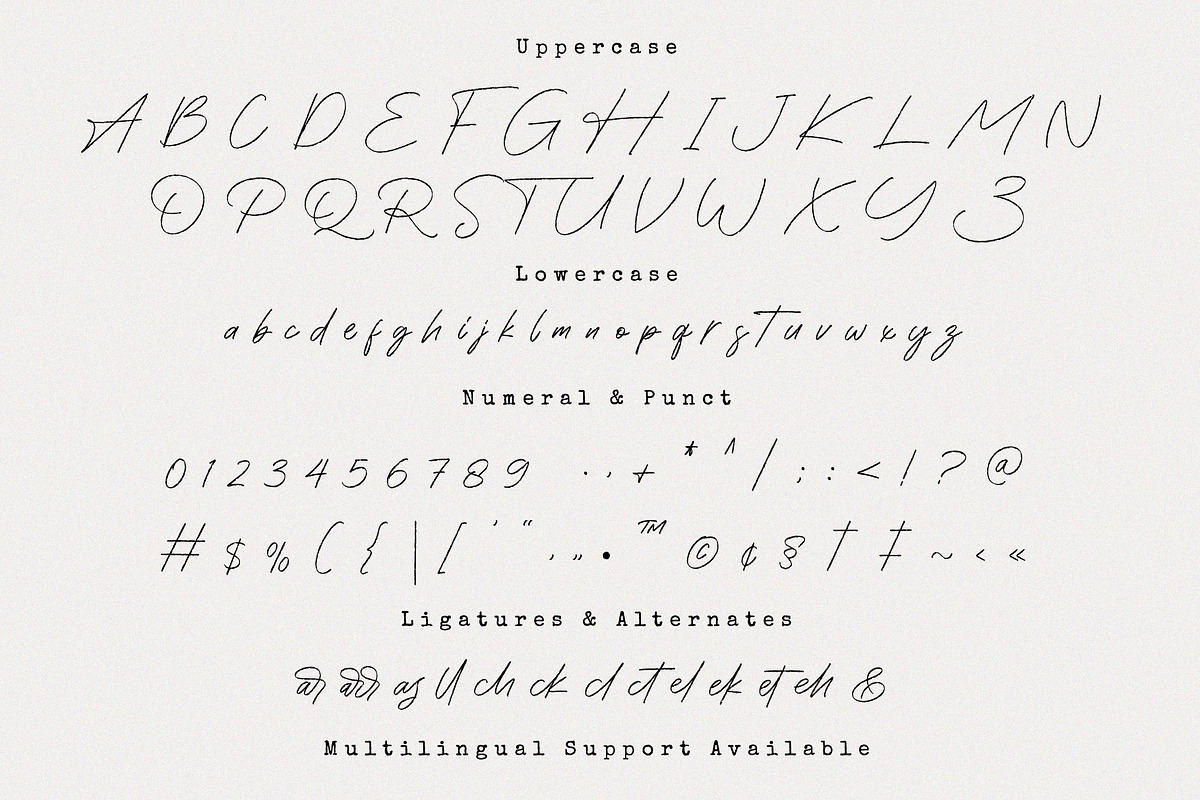 Uppercase
A B C D E F G H I J K L M N
O P Q R S T U V W X Y Z
Lowercase
a b c d e f g h i j k l m n o p q r s t u v w x y z
Numeral & Punct
0 1 2 3 4 5 6 7 8 9 . , + * ^ / ; : < ! ? @
# $ % ( { | [ ’ “ , „ • ™ © ¢ § † ‡ ~ ‹ «
Ligatures & Alternates
ch ck cl ct el ek et eh &
Multilingual Support Available